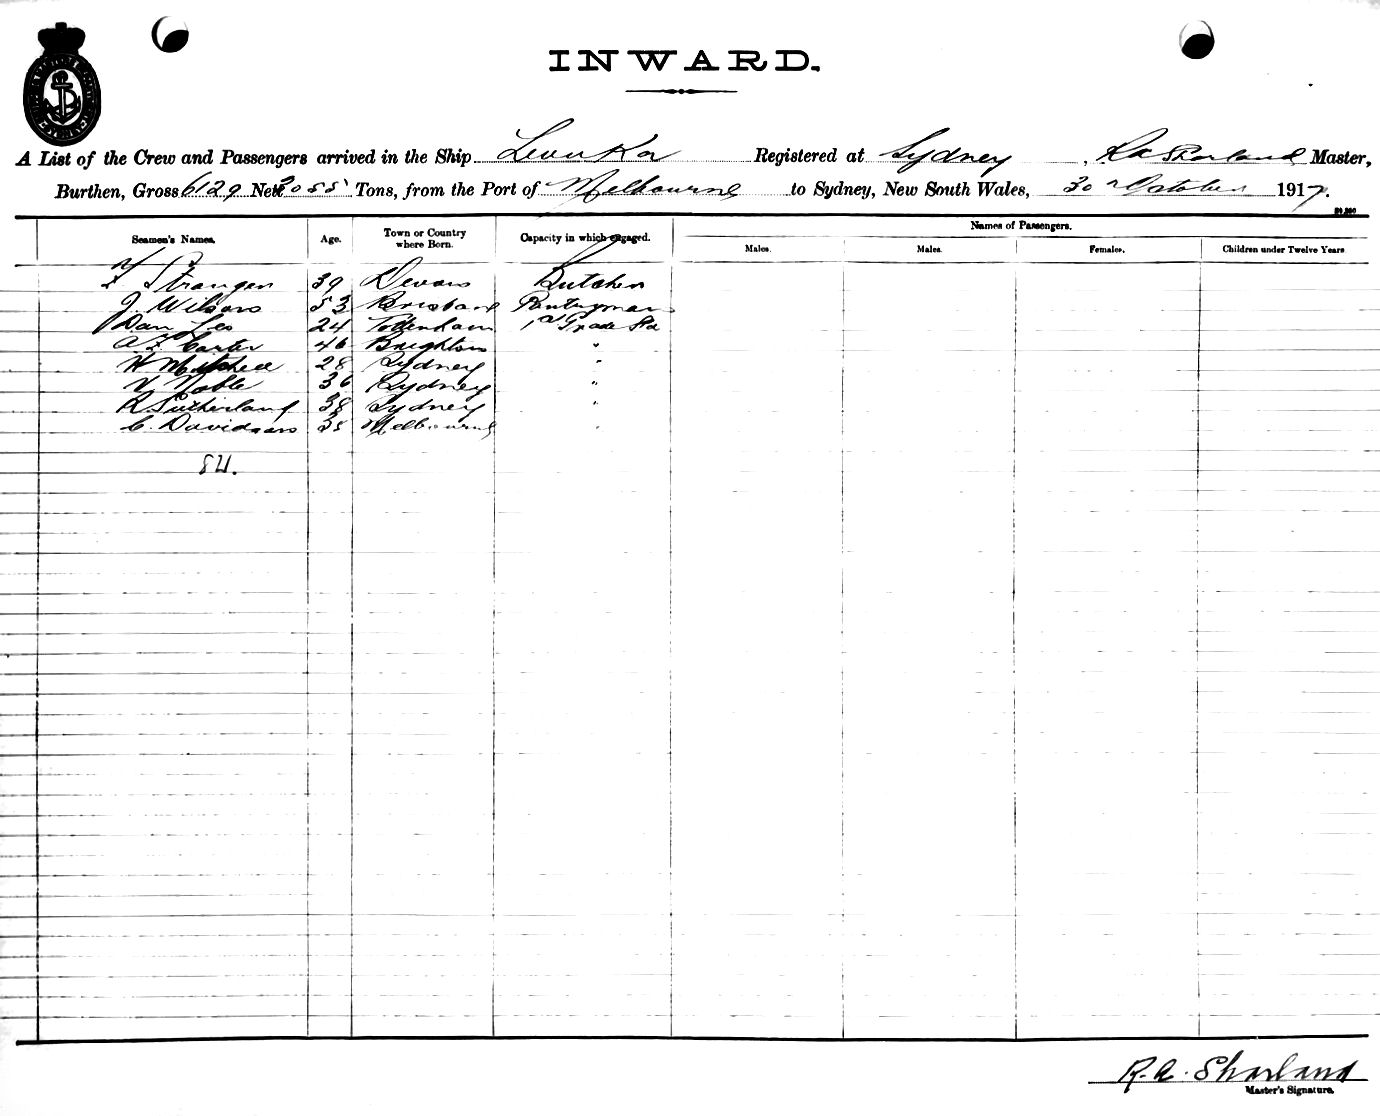 INWARD.
A List of the Crew and Passengers arrived in the Ship Levuka Registered at Sydney, R A Sharland Master,
Burthen, Gross 6129 Nett 3055 Tons, from the Port of Melbourne to Sydney, New South Wales, 30 October 1917.
Names of Passengers.
Seamen's Names. Age. Town or Country where Born. Capacity in which engaged. Males. Males. Females. Children under Twelve Years
Stranger 39 Devon Butcher
J. Wilson 53 Brisbane Pantryman
Dan Leo 24 Tottenham 1st Grade Std
A Carter 46 Brighton "
H Mitchell 28 Sydney "
V Noble 36 Sydney "
R Sutherland 38 Sydney "
C. Davidson 38 Melbourne "
84.
R. A. Sharland
Master's Signature.